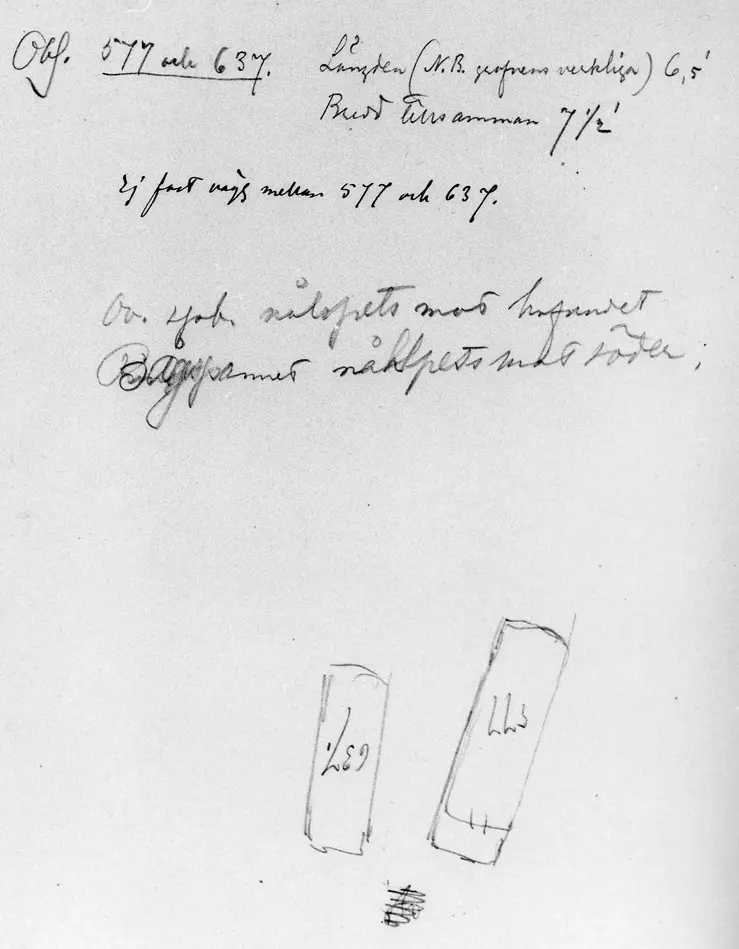 Obs. 577 och 637. Längden (N.B. grafvens verkliga) 6,5'
Bredd tillsamman 7 1/2'
Ej fast vägg mellan 577 och 637.
Ov. spets mot hufvudet
Bagspännet nålspets mot söder.
637.
577